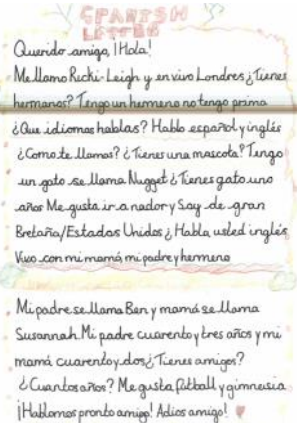 SPANISH
LETTER
Querido amigo, ¡Hola!
Me llamo Ricki-Leigh y en vivo Londres ¿Tienes
hermanos? Tengo un hermeno no tengo prima
¿Que idiomas hablas? Hablo español y inglés
¿Como te llamas? ¿Tienes una mascota? Tengo
un gato se llama Nugget ¿Tienes gato uno
años Me gusta ir a nador y Soy de gran
Bretaña/Estados Unidos ¿Habla usted inglés
Vivo con mi mamá, mi padre y hermeno
Mi padre se llama Ben y mamá se llama
Susannah. Mi padre cuarento y tres años y mi
mamá cuarento y dos ¿Tienes amigos?
¿Cuantos años? Me gusta fútball y gimnesia
¡Hablamos pronto amigo! Adios amigo!